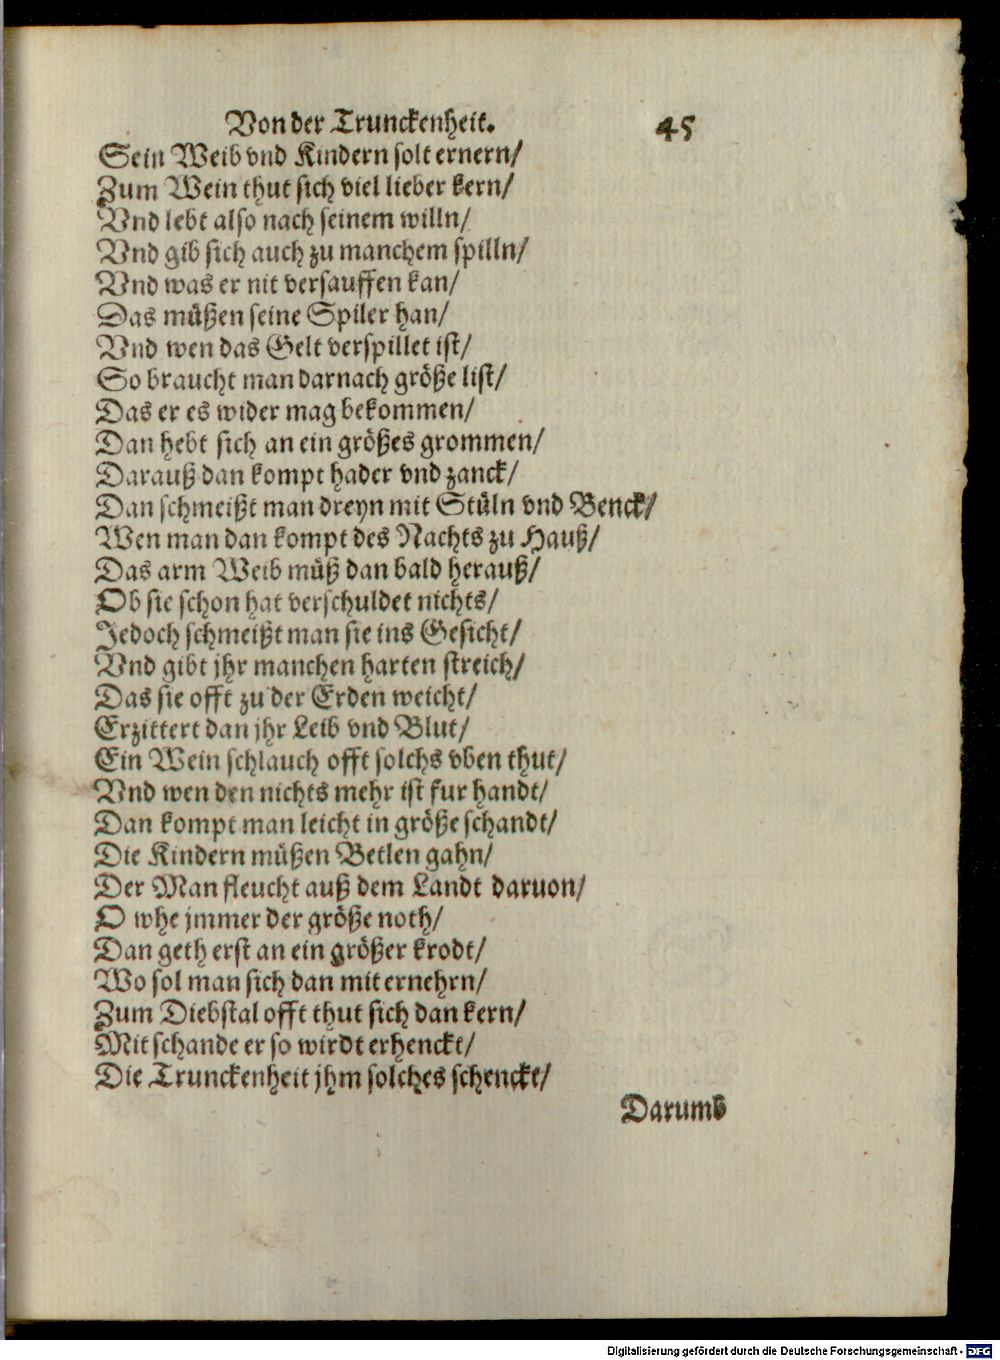 Von der Trunckenheit. 45
Sein Weib vnd Kindern solt ernern/
Zum Wein thut sich viel lieber kern/
Vnd lebt also nach seinem willn/
Vnd gib sich auch zu manchem spilln/
Vnd was er nit versauffen kan/
Das müßen seine Spiler han/
Vnd wen das Gelt verspillet ist/
So braucht man darnach größe list/
Das er es wider mag bekommen/
Dan hebt sich an ein größes grommen/
Darauß dan kompt hader vnd zanck/
Dan schmeißt man dreyn mit Stüln vnd Benck/
Wen man dan kompt des Nachts zu Hauß/
Das arm Weib müß dan bald herauß/
Ob sie schon hat verschuldet nichts/
Jedoch schmeißt man sie ins Gesicht/
Vnd gibt jhr manchen harten streich/
Das sie offt zu der Erden weicht/
Erzittert dan jhr Leib vnd Blut/
Ein Wein schlauch offt solchs vben thut/
Vnd wen den nichts mehr ist fur handt/
Dan kompt man leicht in größe schandt/
Die Kindern müßen Betlen gahn/
Der Man fleucht auß dem Landt daruon/
O whe jmmer der größe noth/
Dan geth erst an ein größer krodt/
Wo sol man sich dan mit ernehrn/
Zum Diebstal offt thut sich dan kern/
Mit schande er so wirdt erhenckt/
Die Trunckenheit jhm solches schenckt/
Darumb
Digitalisierung gefördert durch die Deutsche Forschungsgemeinschaft - DFG